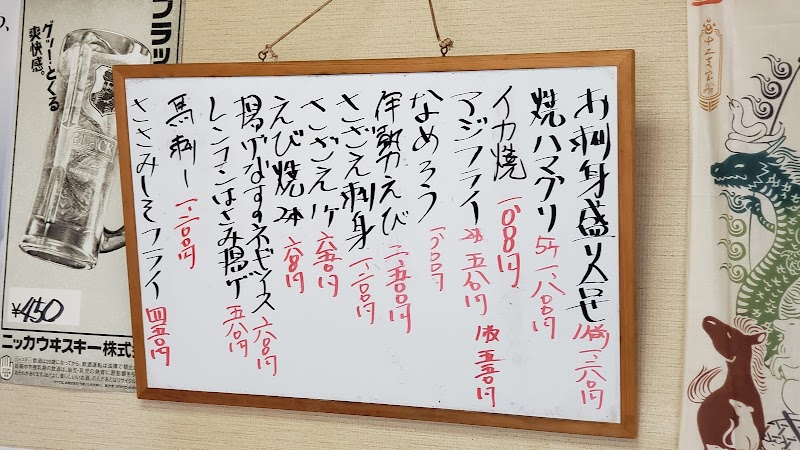 お刺身盛り合せ 1人前 一、二八〇円
焼ハマグリ 5ケ 一、八〇〇円
イカ焼 一、〇八〇円
アジフライ 2枚 五八〇円
1枚 五五〇円
なめろう 一、〇〇〇円
伊勢えび 二、五〇〇円
さざえ刺身 一、二〇〇円
さざえ1ケ 六五〇円
えび焼 2本 六八〇円
揚げなすのネギソース 六八〇円
レンコンはさみ揚げ 五八〇円
馬刺し 一、二〇〇円
ささみしそフライ 四五〇円
ブラッ
グッ!とくる
爽快感。
BLACK
¥450
ニッカウヰスキー株式
十二支宝船